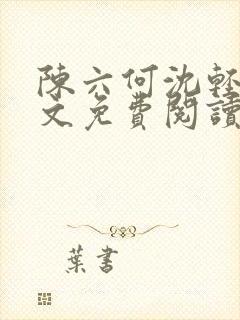 陳六何沈輕
文免費閱讀
葉書